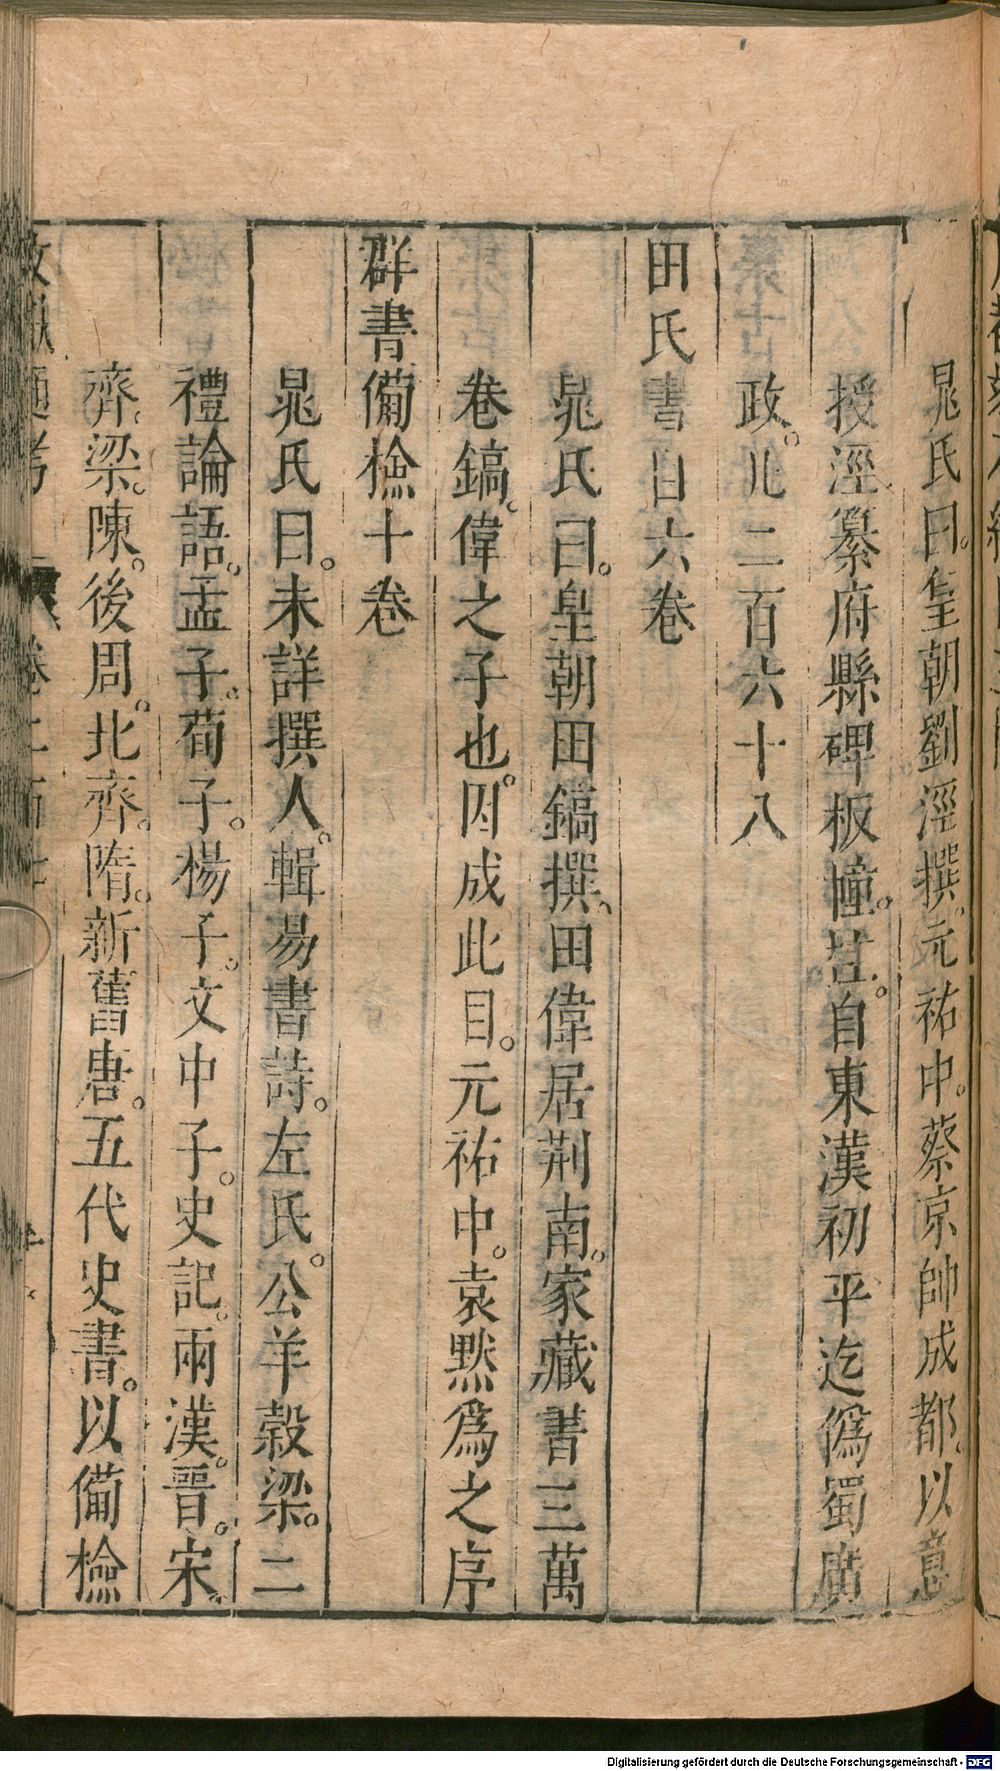 晁氏曰。皇朝劉涇撰。元祐中。蔡京帥成都。以意
授涇纂府縣碑板幢。葢。自東漢初平迄僞蜀廣
政。凡二百六十八
田氏書目六卷
晁氏曰。皇朝田鎬撰。田偉居荆南。家藏書三萬
卷鎬。偉之子也。因成此目。元祐中。袁黙爲之序
群書備檢十卷
晁氏曰。未詳撰人。輯易書詩。左氏。公羊穀梁。二
禮論語。孟子。荀子。楊子。文中子。史記。兩漢。晋。宋。
齊。梁。陳。後周。北齊。隋。新舊唐。五代史書。以備檢
Digitalisierung gefördert durch die Deutsche Forschungsgemeinschaft - DFG